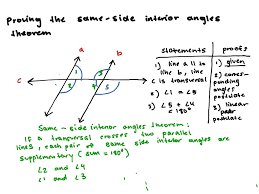 Proving the same-side interior angles
theorem
a
b
c
statements
proofs
1) line a ll to
line b, line
c is transversal
1) given
2) ∠1 = ∠5
2) corres-
ponding
angles
postulate
3) ∠5 + ∠4
= 180°
3) linear
pair
postulate
Same-side interior angles theorem:
If a transversal crosses two parallel
lines, each pair of same side interior angles are
supplementary (sum = 180°)
∠2 and ∠4
∠1 and ∠3